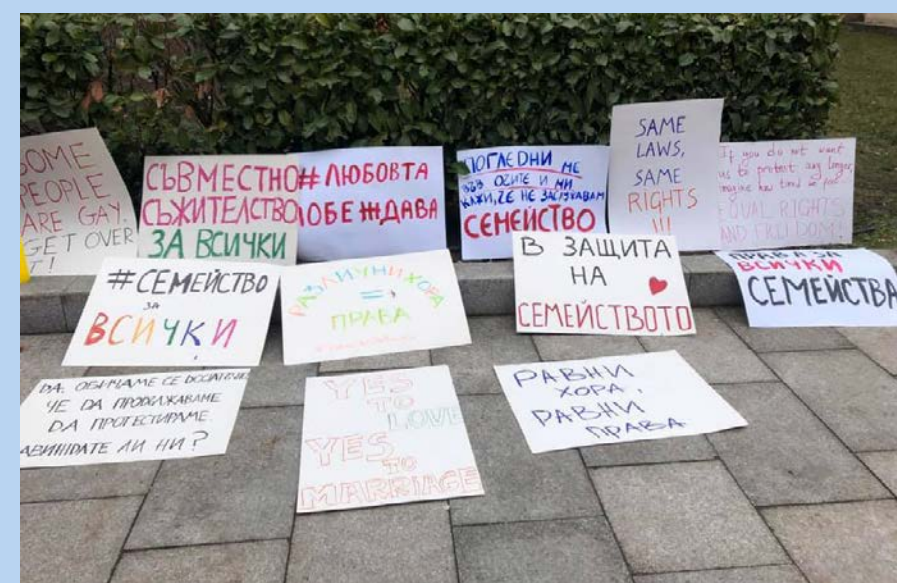 SOME
PEOPLE
ARE GAY.
GET OVER
IT!
СЪВМЕСТНО
СЪЖИТЕЛСТВО
ЗА ВСИЧКИ
# ЛЮБОВТА
ПОБЕЖДАВА
ПОГЛЕДНИ МЕ
В ОЧИТЕ И МИ
КАЖИ, ЧЕ НЕ ЗАСЛУЖАВАМ
СЕМЕЙСТВО
SAME
LAWS,
SAME
RIGHTS
!!!
If you do not want
us to protest any longer,
imagine how tired we feel
EQUAL RIGHTS
AND FREEDOM!
#СЕМЕЙСТВО
ЗА
ВСИЧКИ
РАЗЛИЧНИ ХОРА
=
ПРАВА
В ЗАЩИТА
НА
СЕМЕЙСТВОТО
ПРАВА ЗА
ВСИЧКИ
СЕМЕЙСТВА
ДА, ОБИЧАМЕ СЕ ДОСТАТЪЧНО,
ЧЕ ДА ПРОДЪЛЖАВАМЕ
ДА ПРОТЕСТИРАМЕ.
ЛИ НИ?
YES
TO
LOVE
YES
TO
MARRIAGE
РАВНИ
ХОРА,
РАВНИ
ПРАВА